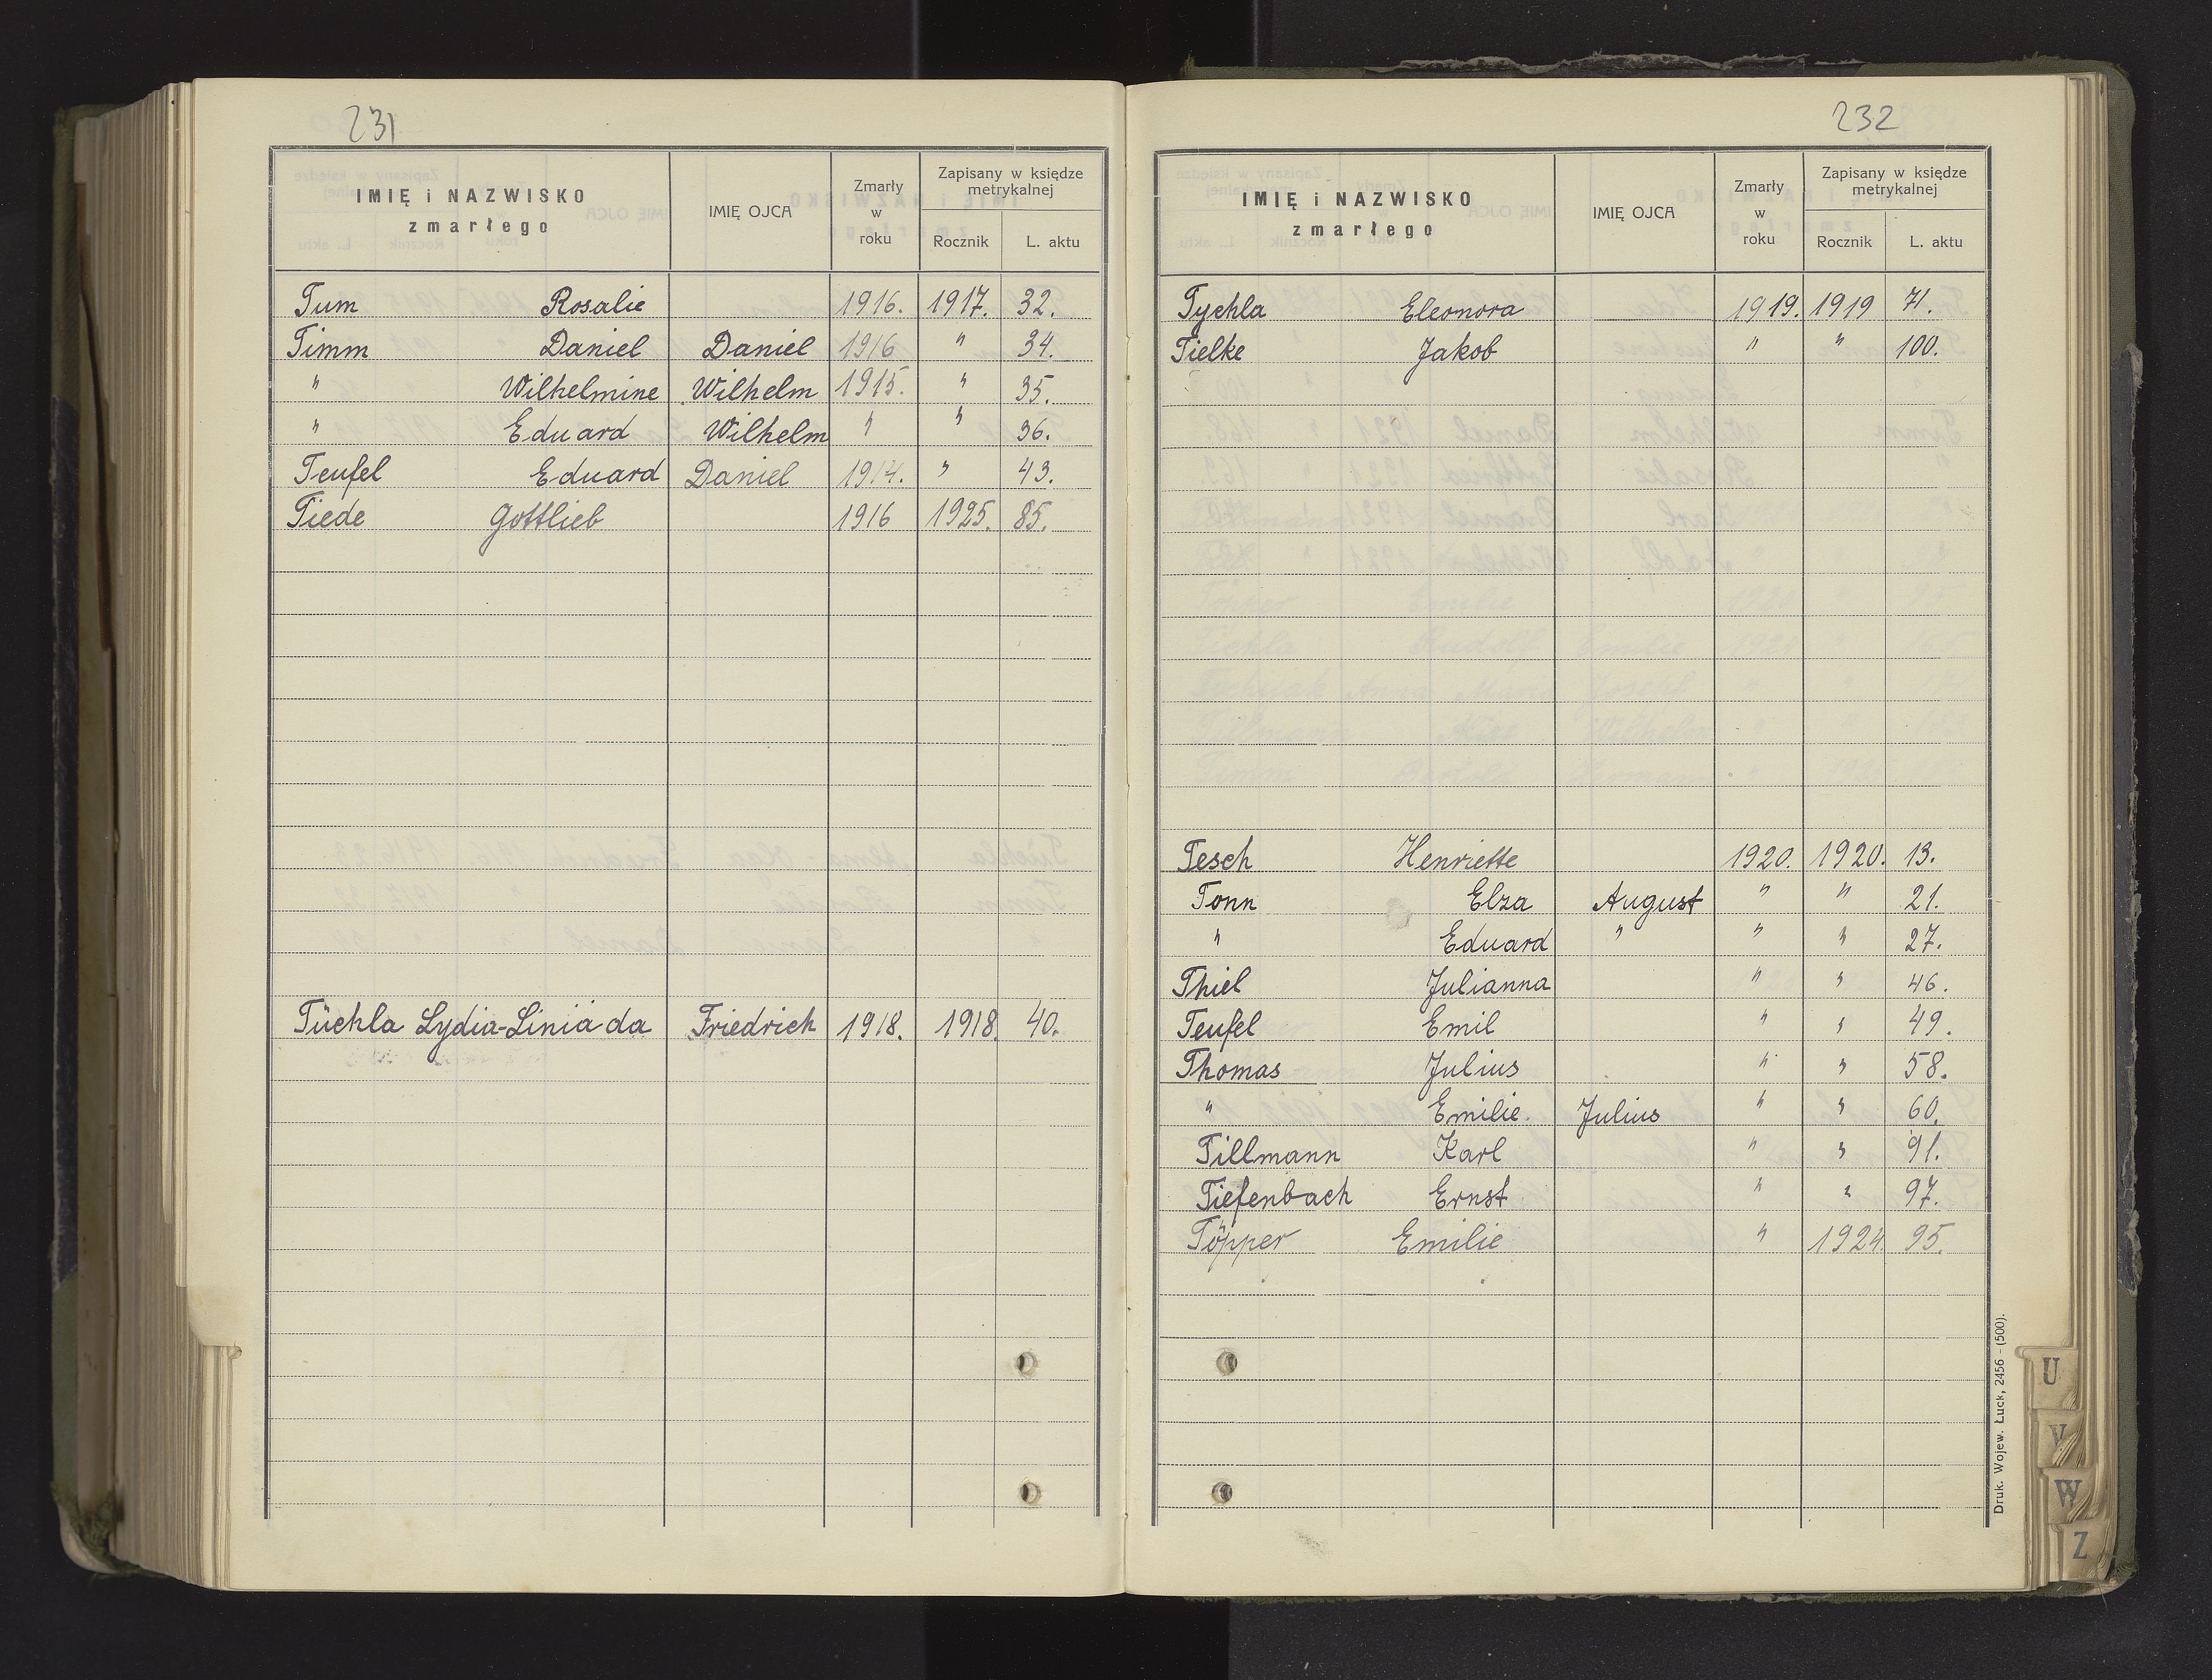 231
IMIĘ i NAZWISKO zmarłego IMIĘ OJCA Zmarły w roku Zapisany w księdze metrykalnej Rocznik L. aktu
Tum Rosalie 1916. 1917. 32.
Timm Daniel Daniel 1916 " 34.
" Wilhelmine Wilhelm 1915. " 35.
" Eduard Wilhelm " " 36.
Teufel Eduard Daniel 1914. " 43.
Tiede Gottlieb 1916 1925. 85.
Tüchla Lydia-Liniada Friedrich 1918. 1918. 40.
232
IMIĘ i NAZWISKO zmarłego IMIĘ OJCA Zmarły w roku Zapisany w księdze metrykalnej Rocznik L. aktu
Tychla Eleonora 1919. 1919 71.
Tielke Jakob " " 100.
Tesch Henriette 1920. 1920. 13.
Tonn Elza August " " 21.
" Eduard " " " 27.
Thiel Julianna " " 46.
Teufel Emil " " 49.
Thomas Julius " " 58.
" Emilie. Julius " " 60.
Tillmann Karl " " 91.
Tiefenbach Ernst " " 97.
Töpper Emilie " 1924. 95.
Druk. Wojew. Łuck, 2456 - (500).
U
V
W
Z